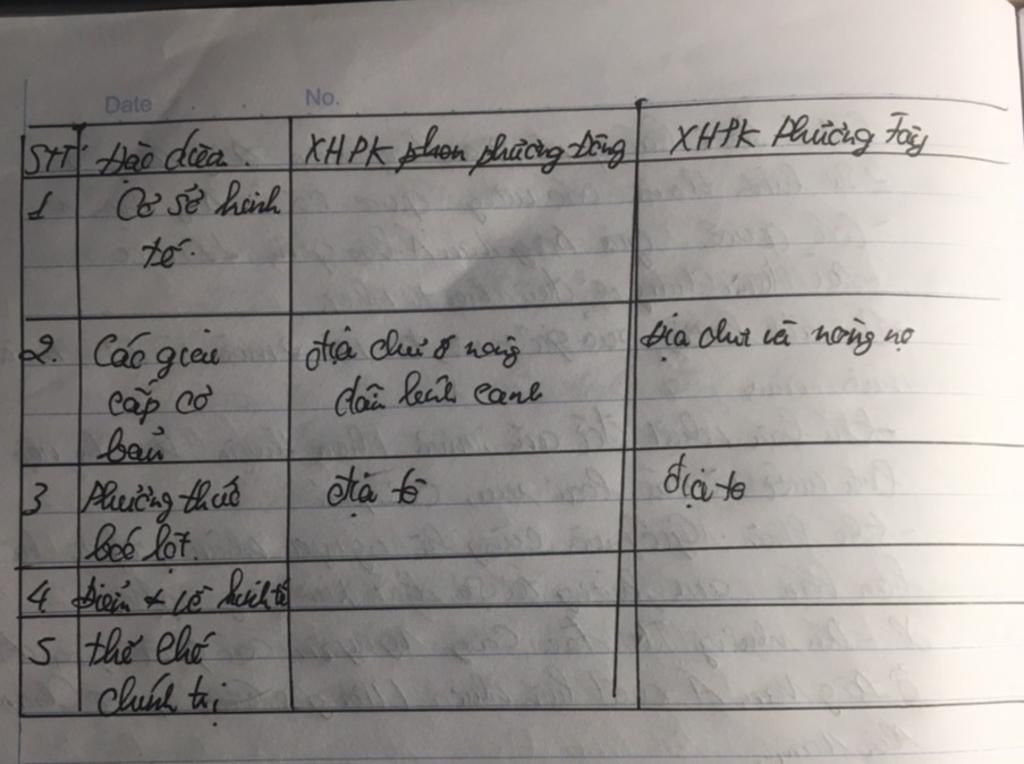 Date No.
STT Đặc điểm. XHPK phon phương Đông XHPK Phương Tây
1 Cơ sở kinh
tế.
2. Các giai địa chủ & nông địa chủ và nông nọ
cấp cơ dân lĩnh canh
bản
3 Phương thức địa tô địa tô
bóc lột.
4 Điểm ≠ về kinh tế
5 thể chế
chính trị